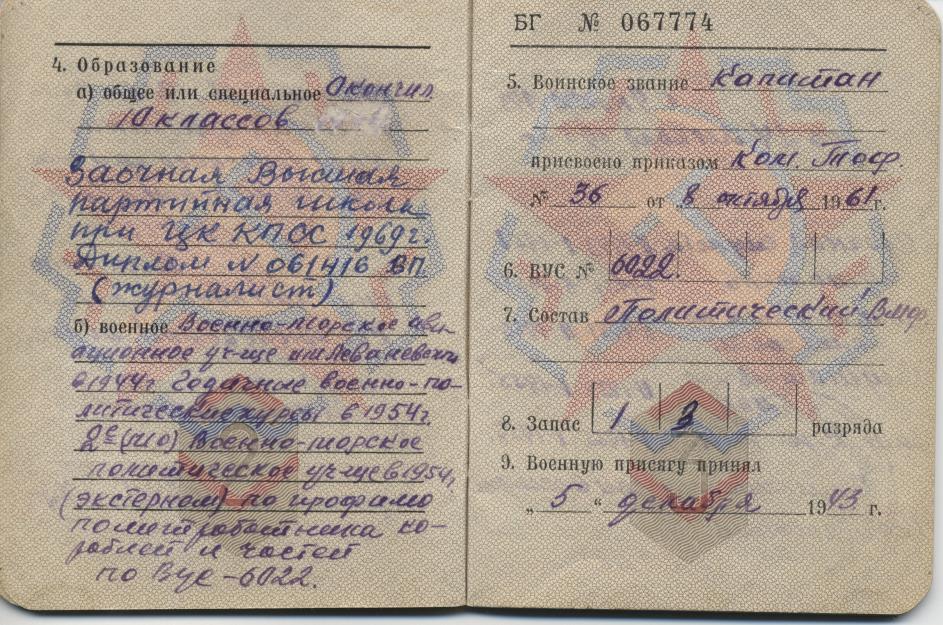 4. Образование
а) общее или специальное Окончил
10 классов
Заочная Высшая
партийная школа
при ЦК КПСС 1969г.
Диплом № 061416 ВП
(журналист)
б) военное Военно-морское ави
ационное уч-ще им Леваневского
в 1944г Годичные военно-по-
литические курсы в 1954г.
2е (ЧО) Военно-морское
политическое уч-ще в 1954г.
(экстерном) по профилю
политработника ко-
раблей и частей
по Вус-6022.
БГ № 067774
5. Воинское звание капитан
присвоено приказом Ком. Тоф.
№ 36 от 8 октября 1961г.
6. ВУС № 6022.
7. Состав Политический Вмф
8. Запас 1 3 разряда
9. Военную присягу принял
„ 5 “ декабря 1943 г.